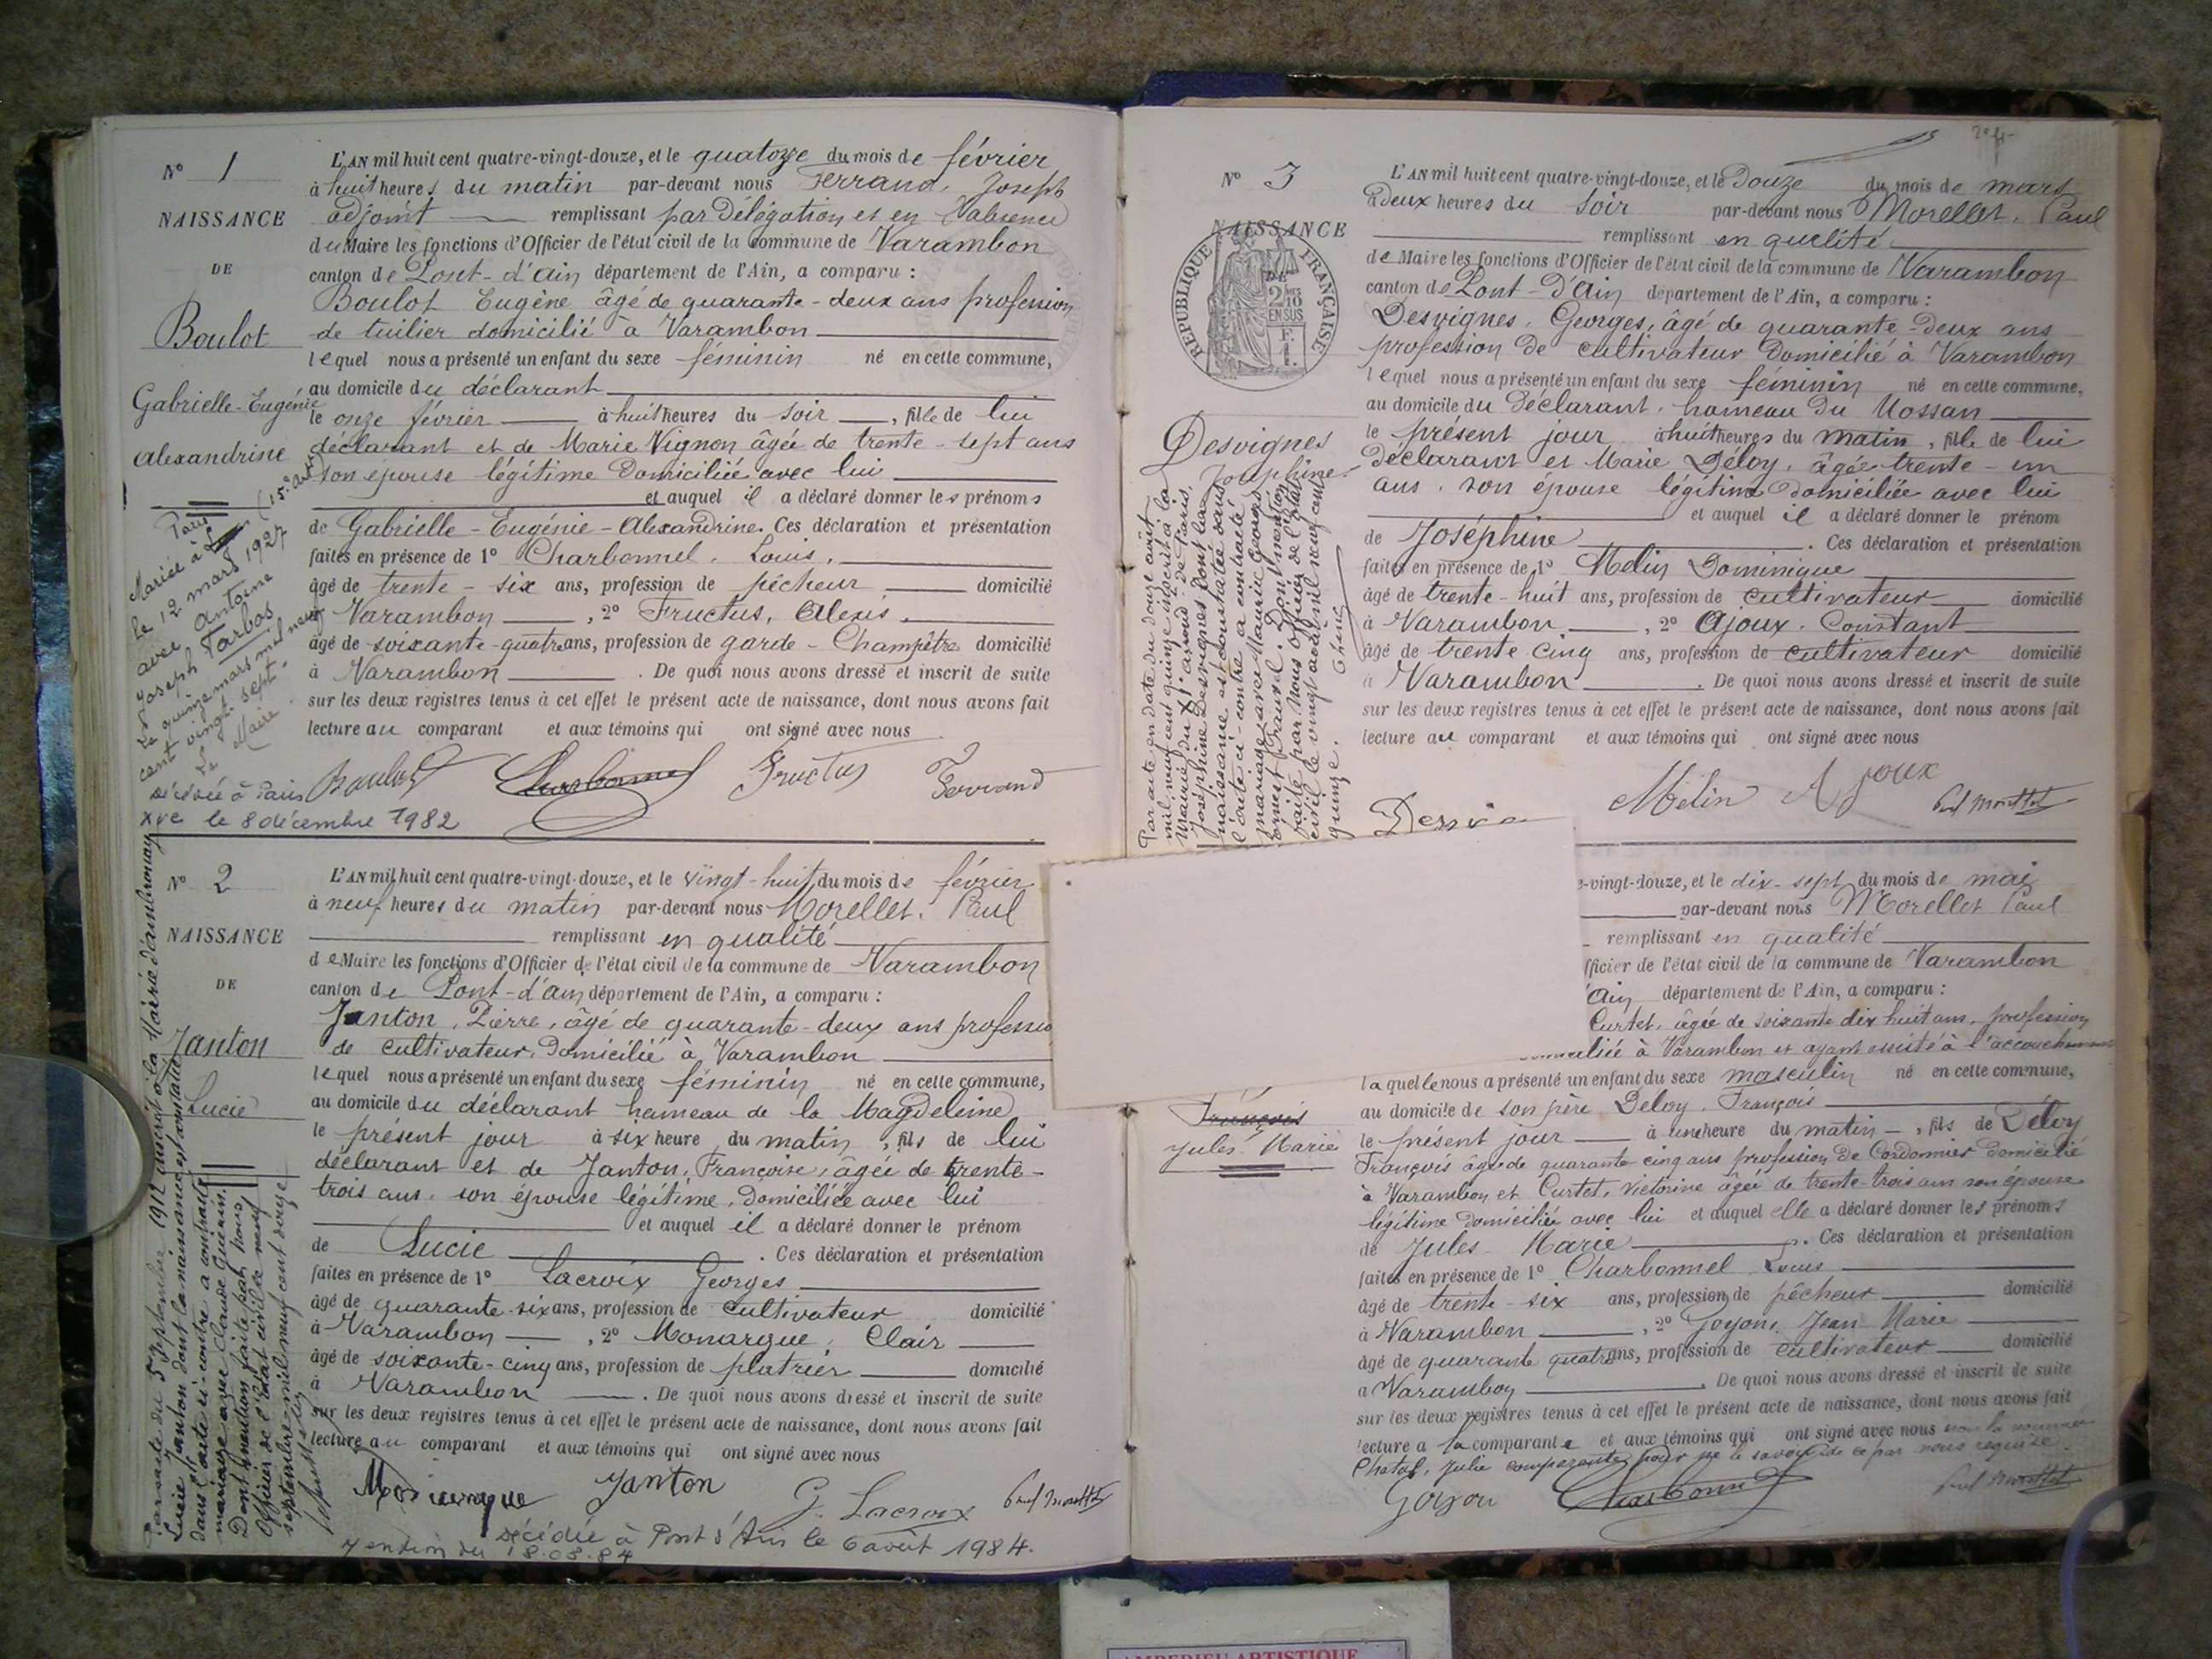 Nº 1
NAISSANCE
DE
Boulot
Gabrielle-Eugénie
Alexandrine
Mariée à Paris (15e arrt
le 12 mars 1927
avec Antoine
Joseph Tarbas
Le quinze mars mil neuf
cent vingt-sept.
Le Maire
Décédée à Paris
XVe le 8 décembre 1982
L'AN mil huit cent quatre-vingt-douze, et le quatorze du mois de février
à huit heures du matin par-devant nous Ferrand, Joseph
adjoint remplissant par délégation et en l'absence
du Maire les fonctions d'Officier de l'état civil de la commune de Varambon
canton de Pont-d'Ain département de l'Ain, a comparu :
Boulot Eugène âgé de quarante-deux ans profession
de tuilier domicilié à Varambon
lequel nous a présenté un enfant du sexe féminin né en cette commune,
au domicile du déclarant
le onze février à huit heures du soir, fille de lui
déclarant et de Marie Vignon âgée de trente-sept ans
son épouse légitime domiciliée avec lui
et auquel il a déclaré donner les prénoms
de Gabrielle-Eugénie-Alexandrine. Ces déclaration et présentation
faites en présence de 1º Charbonnel, Louis,
âgé de trente-six ans, profession de pêcheur domicilié
à Varambon, 2º Fructus, Alexis,
âgé de soixante-quatre ans, profession de garde-Champêtre domicilié
à Varambon. De quoi nous avons dressé et inscrit de suite
sur les deux registres tenus à cet effet le présent acte de naissance, dont nous avons fait
lecture au comparant et aux témoins qui ont signé avec nous
Boulot Charbonnel Fructus Ferrand
Nº 2
NAISSANCE
DE
Janton
Lucie
Par acte du 5 septembre 1912 inscrit à la Mairie d'Ambronay
Lucie Janton dont la naissance est constatée
dans l'acte ci-contre a contracté
mariage avec Claude Guérin.
Dont mention faite par nous
Officier de l'état civil le neuf
septembre mil neuf cent douze
L'AN mil huit cent quatre-vingt-douze, et le vingt-huit du mois de février
à neuf heures du matin par-devant nous Morellet, Paul
remplissant en qualité
de Maire les fonctions d'Officier de l'état civil de la commune de Varambon
canton de Pont-d'Ain département de l'Ain, a comparu :
Janton, Pierre, âgé de quarante-deux ans professio
de cultivateur, domicilié à Varambon
lequel nous a présenté un enfant du sexe féminin né en cette commune,
au domicile du déclarant hameau de la Magdeleine
le présent jour à six heure du matin, fils de lui
déclarant et de Janton, Françoise, âgée de trente-
trois ans, son épouse légitime, domiciliée avec lui
et auquel il a déclaré donner le prénom
de Lucie. Ces déclaration et présentation
faites en présence de 1º Lacroix Georges
âgé de quarante-six ans, profession de cultivateur domicilié
à Varambon, 2º Monarque, Clair
âgé de soixante-cinq ans, profession de platrier domicilié
à Varambon. De quoi nous avons dressé et inscrit de suite
sur les deux registres tenus à cet effet le présent acte de naissance, dont nous avons fait
lecture au comparant et aux témoins qui ont signé avec nous
Monarque Janton G. Lacroix Paul Morellet
Décédée à Pont d'Ain le 6 août 1984.
Mention du 18.08.84
Nº 3
NAISSANCE
DE
RÉPUBLIQUE FRANÇAISE
2/10 EN SUS
Desvignes
Joséphine
Par acte en date du douze août
mil neuf cent quinze inscrit à la
Mairie du Xe arrond. de Paris,
Joséphine Desvignes dont la
naissance est constatée dans
l'acte ci-contre a contracté
mariage avec Maurice Georges
Dont mention
faite par Nous Officier de l'état
civil le vingt août mil neuf cent
quinze.
L'AN mil huit cent quatre-vingt-douze, et le Douze du mois de mars
à deux heures du soir par-devant nous Morellet, Paul
remplissant en quelité
de Maire les fonctions d'Officier de l'état civil de la commune de Varambon
canton de Pont-d'Ain département de l'Ain, a comparu :
Desvignes, Georges, âgé de quarante-deux ans
profession de cultivateur Domicilié à Varambon
lequel nous a présenté un enfant du sexe féminin né en cette commune,
au domicile du déclarant, hameau du Mossan
le présent jour à huit heures du matin, fille de lui
déclarant et Marie Déloy, âgée trente-un
ans, son épouse légitime domiciliée avec lui
et auquel il a déclaré donner le prénom
de Joséphine. Ces déclaration et présentation
faites en présence de 1º Melin Dominique
âgé de trente-huit ans, profession de cultivateur domicilié
à Varambon, 2º Ajoux, Constant
âgé de trente cinq ans, profession de cultivateur domicilié
à Varambon. De quoi nous avons dressé et inscrit de suite
sur les deux registres tenus à cet effet le présent acte de naissance, dont nous avons fait
lecture au comparant et aux témoins qui ont signé avec nous
Mélin Ajoux
Paul Morellet
François
Jules Marie
e-vingt-douze, et le dix-sept du mois de mai
par-devant nous Morellet Paul
remplissant en qualité
fficier de l'état civil de la commune de Varambon
'Ain département de l'Ain, a comparu :
Curtet, âgée de soixante dix huit ans, profession
domiciliée à Varambon et ayant assisté à l'accouchement
laquelle nous a présenté un enfant du sexe masculin né en cette commune,
au domicile de son père Deloy, François
le présent jour à une heure du matin, fils de Déloy
François âgé de quarante cinq ans profession de Cordonnier domicilié
à Varambon et Curtet, Victorine âgée de trente-trois ans son épouse
légitime domiciliée avec lui et auquel elle a déclaré donner les prénoms
de Jules-Marie. Ces déclaration et présentation
faites en présence de 1º Charbonnel Louis
âgé de trente-six ans, profession de pêcheur domicilié
à Varambon, 2º Goyon, Jean Marie
âgé de quarante quatre ans, profession de cultivateur domicilié
à Varambon. De quoi nous avons dressé et inscrit de suite
sur les deux registres tenus à cet effet le présent acte de naissance, dont nous avons fait
lecture a la comparante et aux témoins qui ont signé avec nous non la nommée
Chatal, Julie comparante pour ne le savoir de ce par nous requise
Goyon Charbonnel Paul Morellet
AMBERIEU ARTISTIQUE